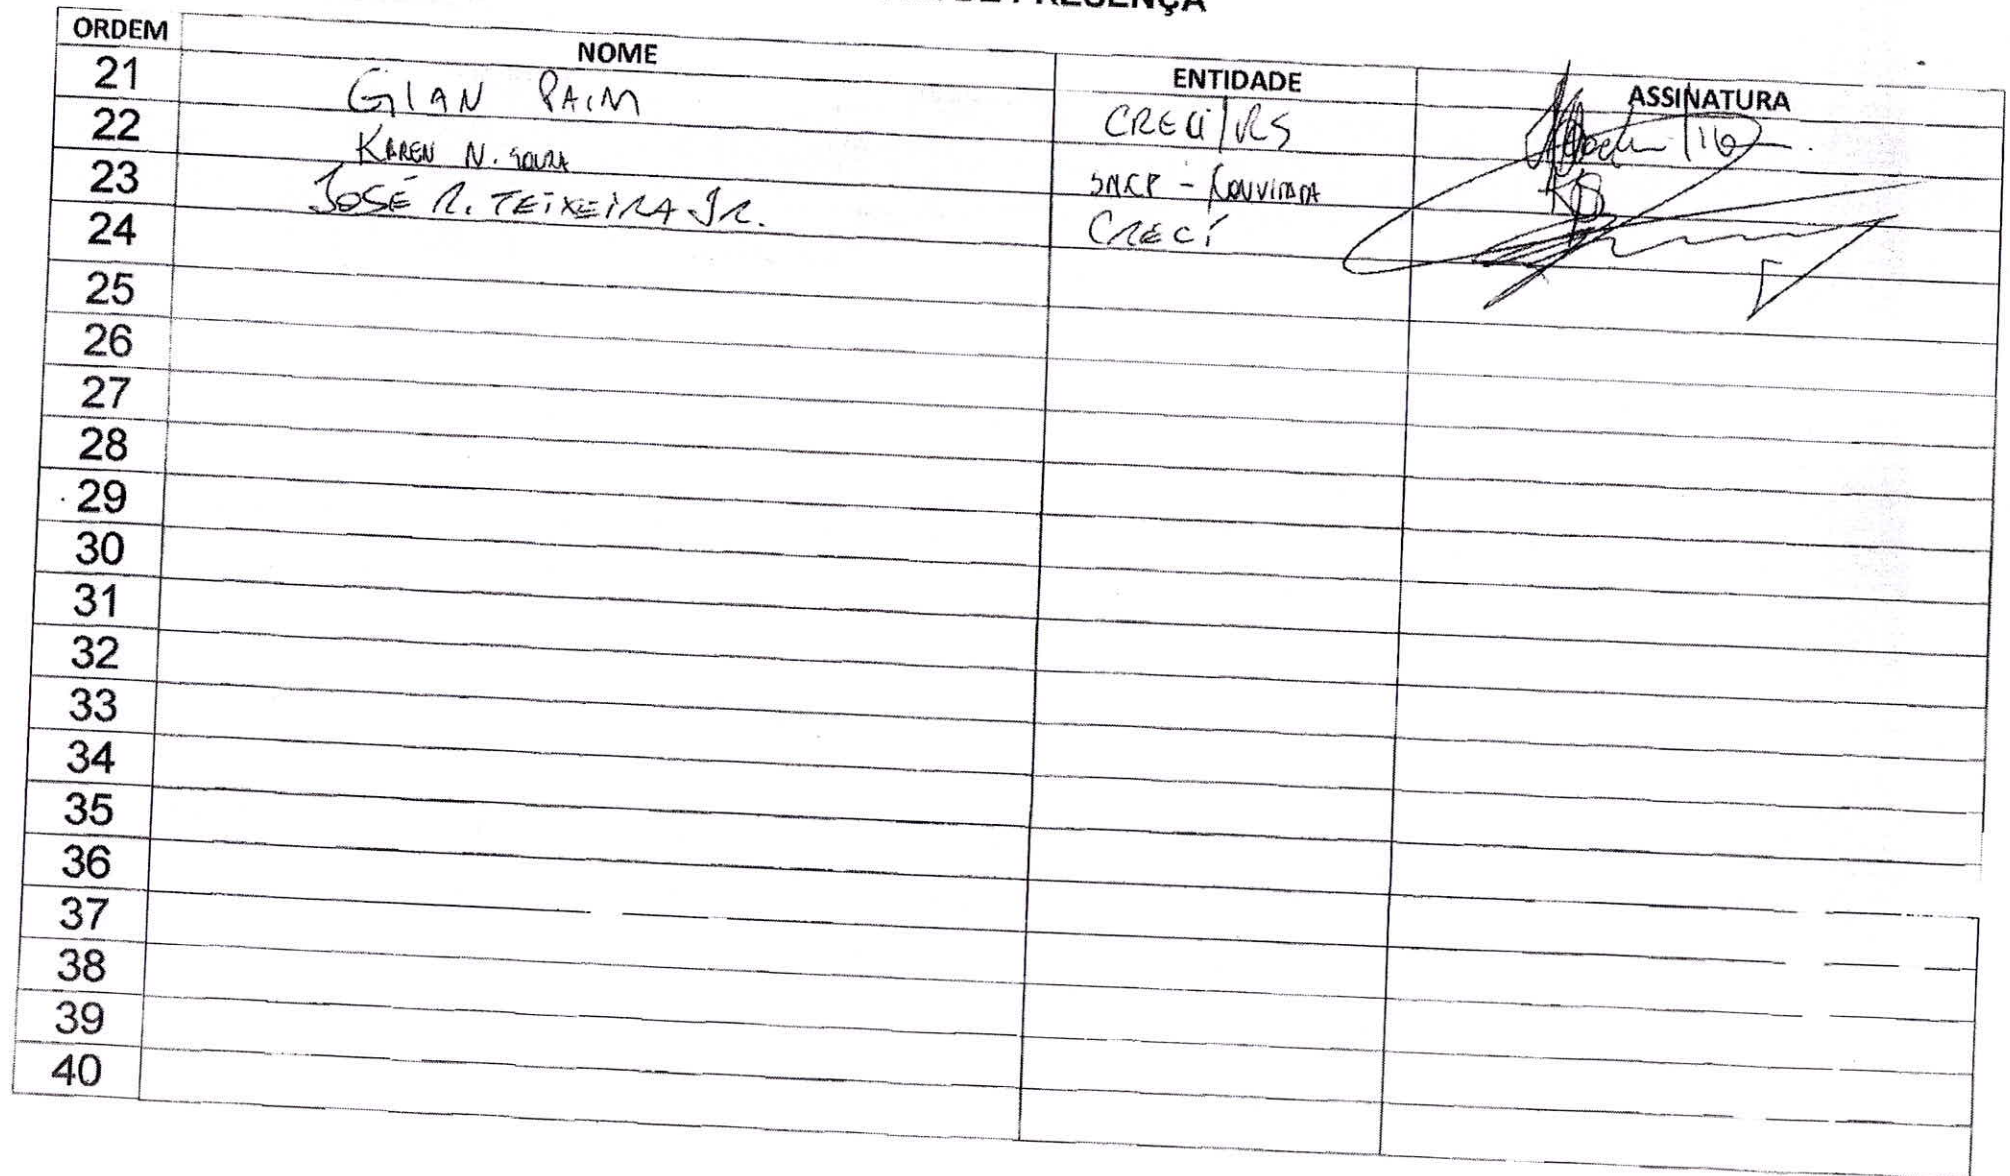 DE PRESENÇA
ORDEM NOME ENTIDADE ASSINATURA
21 GIAN PAIM CRECI/RS
22 KAREN N. SOUZA SMCP -
23 JOSÉ R. TEIXEIRA JR. CRECI
24
25
26
27
28
29
30
31
32
33
34
35
36
37
38
39
40